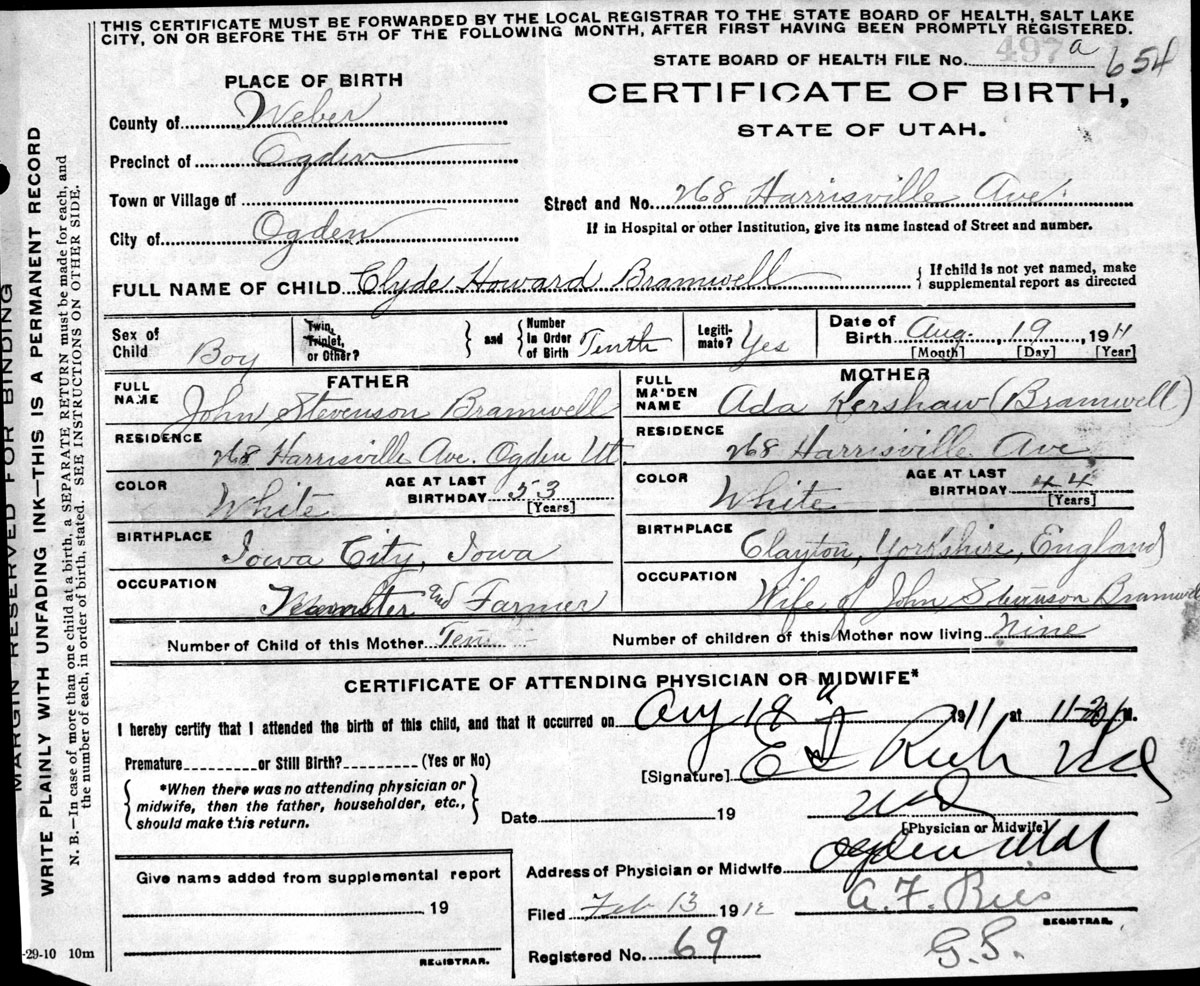 THIS CERTIFICATE MUST BE FORWARDED BY THE LOCAL REGISTRAR TO THE STATE BOARD OF HEALTH, SALT LAKE
CITY, ON OR BEFORE THE 5TH OF THE FOLLOWING MONTH, AFTER FIRST HAVING BEEN PROMPTLY REGISTERED.
STATE BOARD OF HEALTH FILE No. 497 a 654
PLACE OF BIRTH
CERTIFICATE OF BIRTH,
STATE OF UTAH.
County of Weber
Precinct of Ogden
Town or Village of
Street and No. 268 Harrisville Ave.
City of Ogden
If in Hospital or other Institution, give its name Instead of Street and number.
FULL NAME OF CHILD Clyde Howard Bramwell
If child is not yet named, make
supplemental report as directed
Sex of Child Boy
Twin, Triplet, or Other?
and
Number In Order of Birth Tenth
Legiti-mate? Yes
Date of Birth Aug. 19, 1911
[Month] [Day] [Year]
FATHER
FULL NAME John Stevenson Bramwell
RESIDENCE 268 Harrisville Ave. Ogden Ut
COLOR White
AGE AT LAST BIRTHDAY 53
[Years]
BIRTHPLACE Iowa City, Iowa
OCCUPATION Teamster and Farmer
MOTHER
FULL MAIDEN NAME Ada Kershaw (Bramwell)
RESIDENCE 268 Harrisville Ave
COLOR White
AGE AT LAST BIRTHDAY 44
[Years]
BIRTHPLACE Clayton, Yorkshire, England
OCCUPATION Wife of John Stevenson Bramwell
Number of Child of this Mother Ten
Number of children of this Mother now living nine
CERTIFICATE OF ATTENDING PHYSICIAN OR MIDWIFE*
I hereby certify that I attended the birth of this child, and that it occurred on Aug 18 1911 at M.
Premature or Still Birth? (Yes or No)
[Signature] E I Rich Md
*When there was no attending physician or
midwife, then the father, householder, etc.,
should make this return.
Date 19
[Physician or Midwife]
Address of Physician or Midwife Ogden
Give name added from supplemental report
19
REGISTRAR.
Filed Feb 13 1912
REGISTRAR.
Registered No. 69
G.S.
-29-10 10m
MARGIN RESERVED FOR BINDING
WRITE PLAINLY WITH UNFADING INK—THIS IS A PERMANENT RECORD
N. B.—In case of more than one child at a birth, a SEPARATE RETURN must be made for each, and
the number of each, in order of birth, stated. SEE INSTRUCTIONS ON OTHER SIDE.